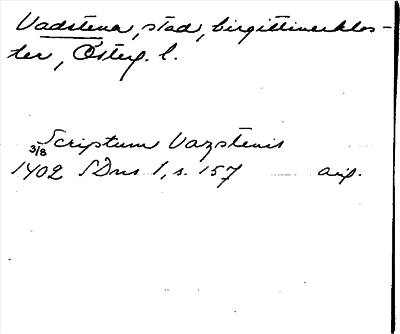 Vadstena, stad, birgittinerklos-
ter, Österg. l.
Scriptum Vazstenis
3/8
1402 SDns 1, s. 157 avg.